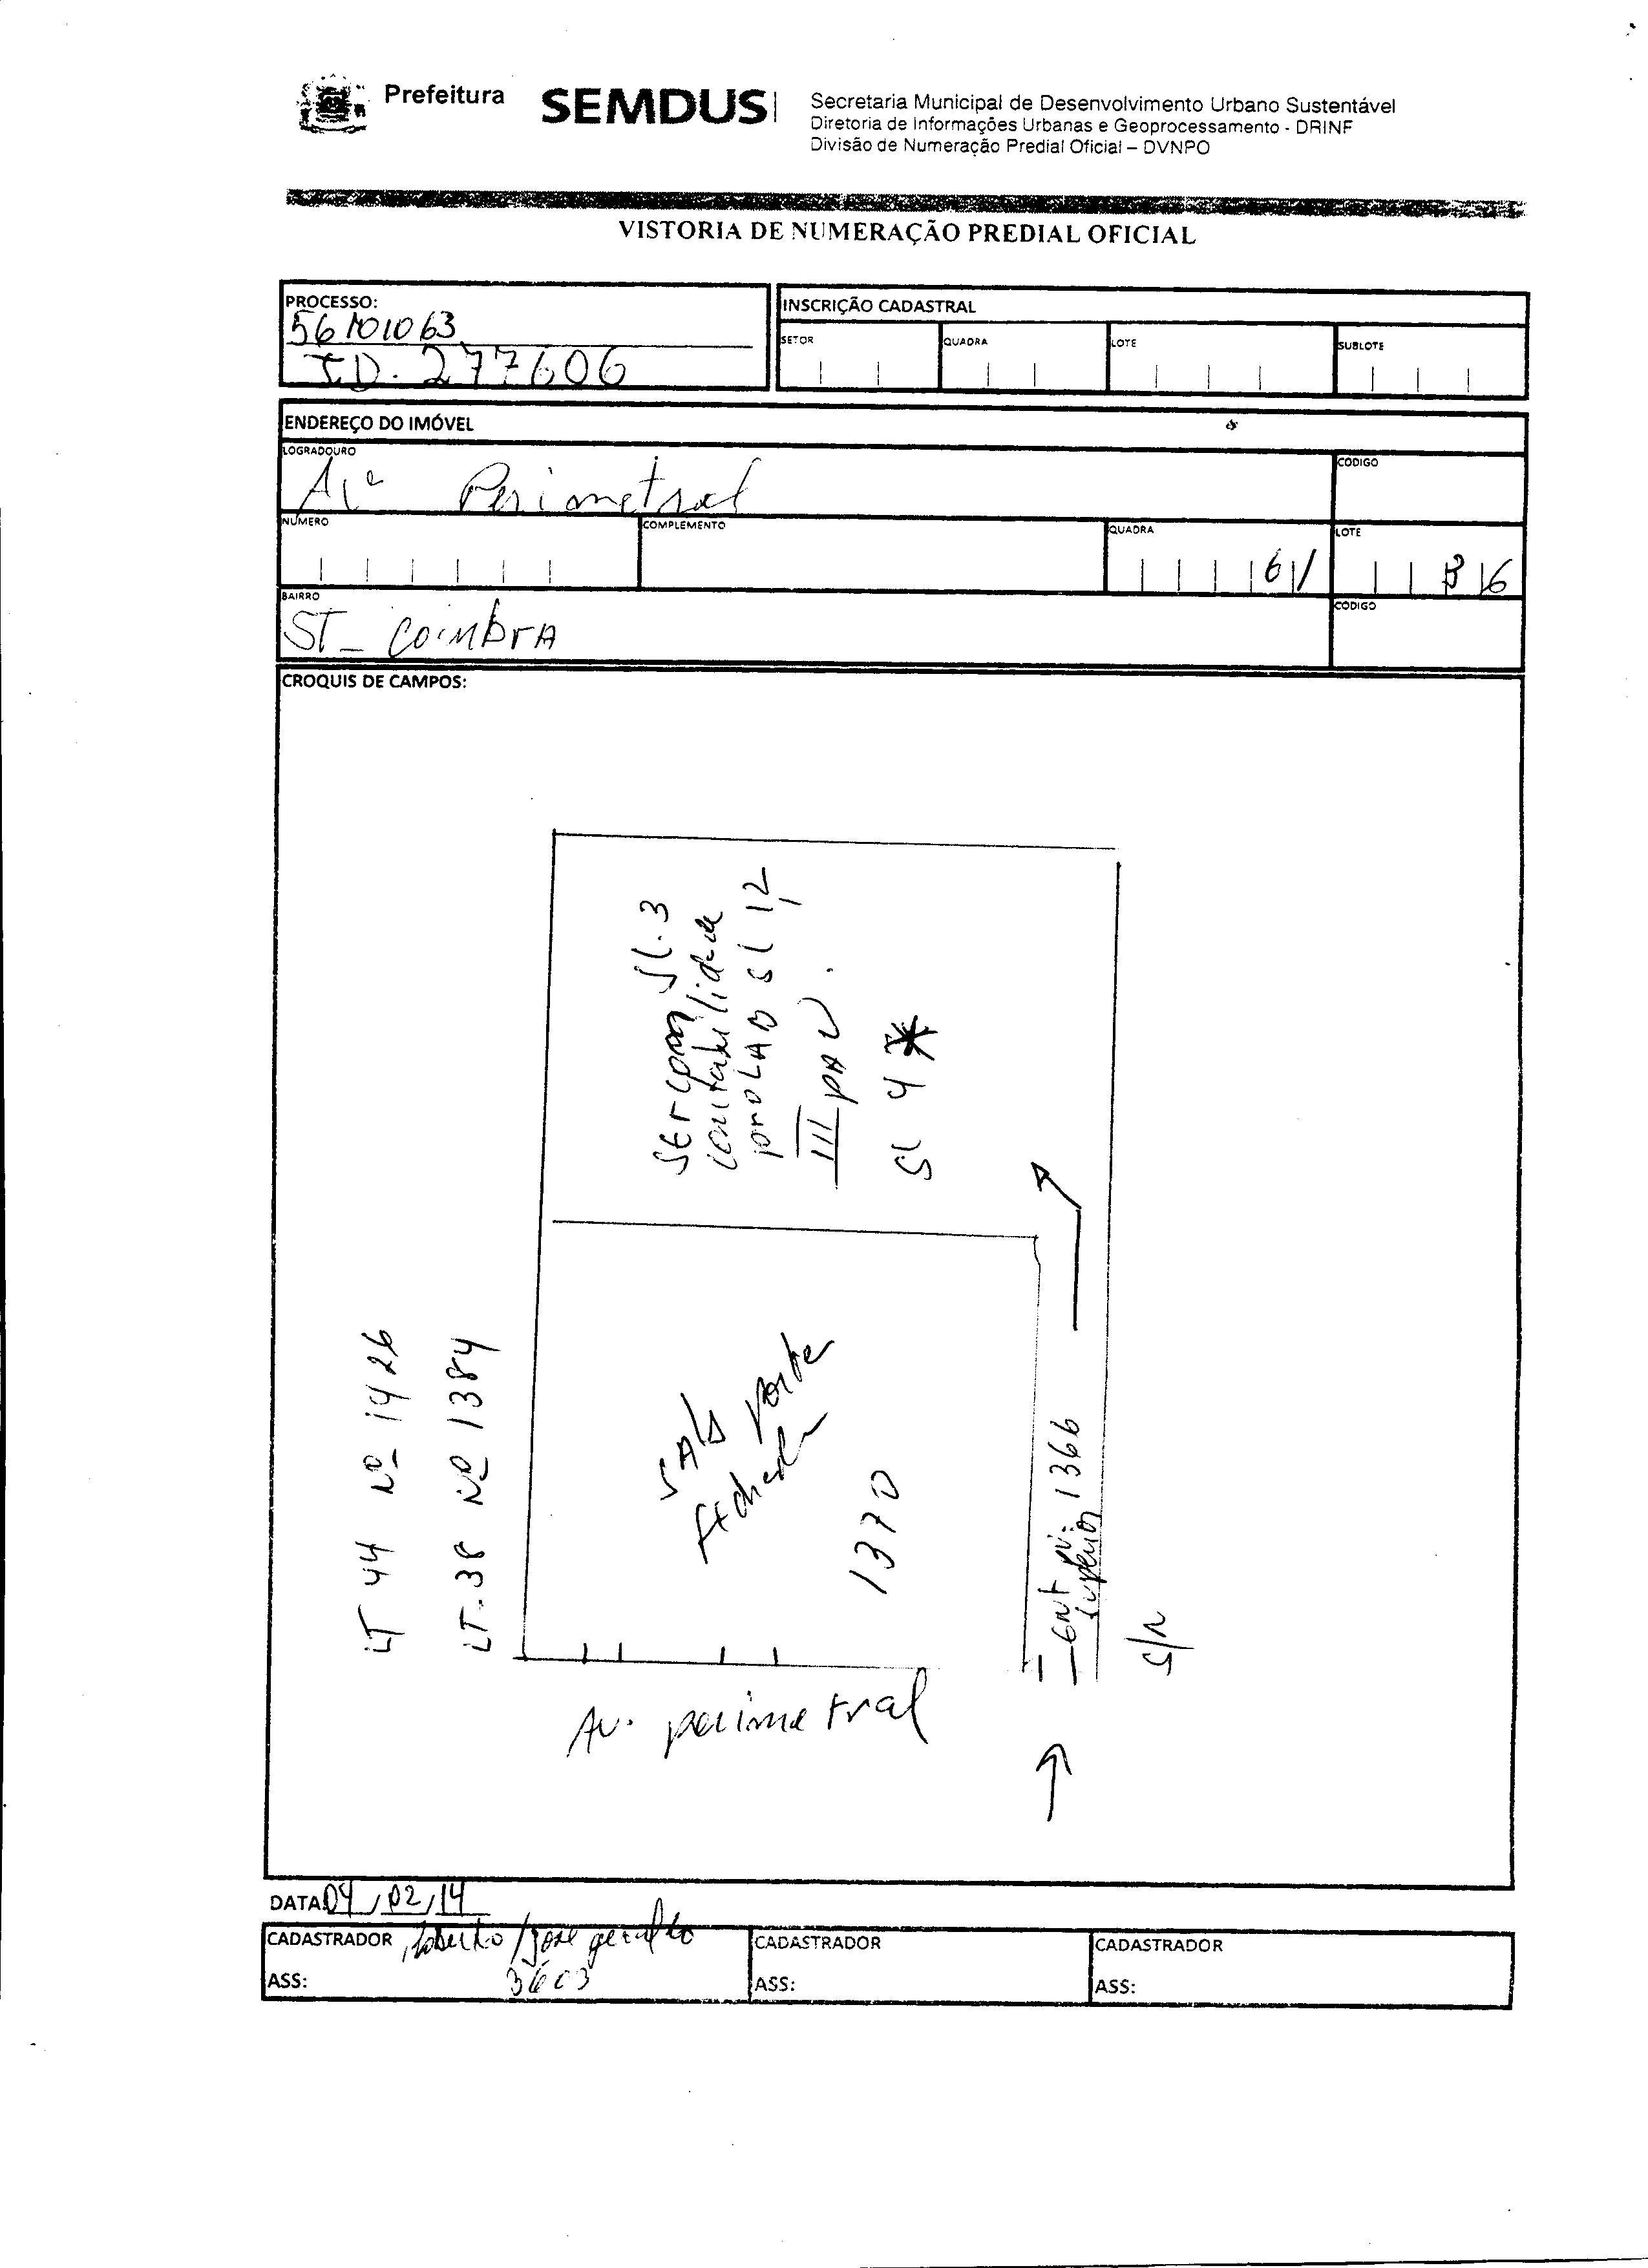 Prefeitura
SEMDUS
Secretaria Municipal de Desenvolvimento Urbano Sustentável
Diretoria de Informações Urbanas e Geoprocessamento - DRINF
Divisão de Numeração Predial Oficial – DVNPO
VISTORIA DE NUMERAÇÃO PREDIAL OFICIAL
PROCESSO:
56101063
I.D. 277606
INSCRIÇÃO CADASTRAL
SETOR
QUADRA
LOTE
SUBLOTE
ENDEREÇO DO IMÓVEL
LOGRADOURO
Avª Perimetral
CODIGO
NÚMERO
COMPLEMENTO
QUADRA
61
LOTE
36
BAIRRO
ST- COimbrA
CODIGO
CROQUIS DE CAMPOS:
Sercom Sl. 3
contabilidade
proLAB Sl 12
III pav.
Sl 4 *
LT 44 Nº 1426
LT. 38 Nº 1384
SAla porta
fechada
1370
ent pv: 1366
superior
S/N
Av. perimetral
DATA 04/02/14
CADASTRADOR Roberto / José geraldo
ASS: 3603
CADASTRADOR
ASS:
CADASTRADOR
ASS: